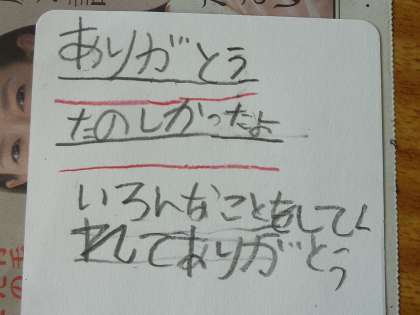 ありがとう
たのしかったよ
いろんなことをしてく
れてありがとう